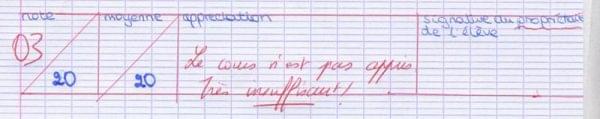 note moyenne appréciation signature du propriétaire
de l'élève
03
20 20
Le cours n'est pas appris.
Très insuffisant!